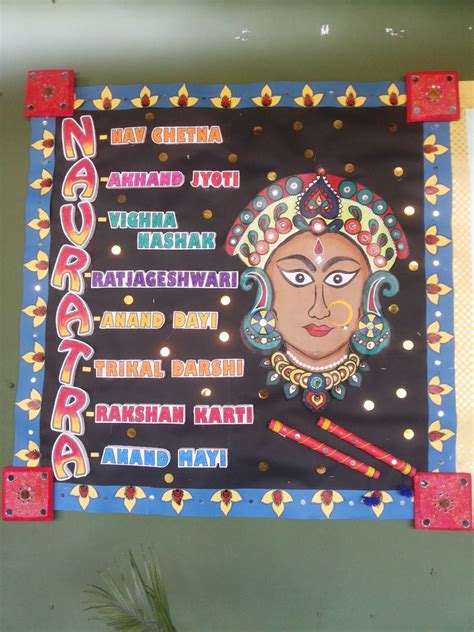 NAVRATRA
- NAV CHETNA
- AKHAND JYOTI
- VIGHNA
NASHAK
- RATJAGESHWARI
- ANAND DAYI
- TRIKAL DARSHI
- RAKSHAN KARTI
- ANAND MAYI